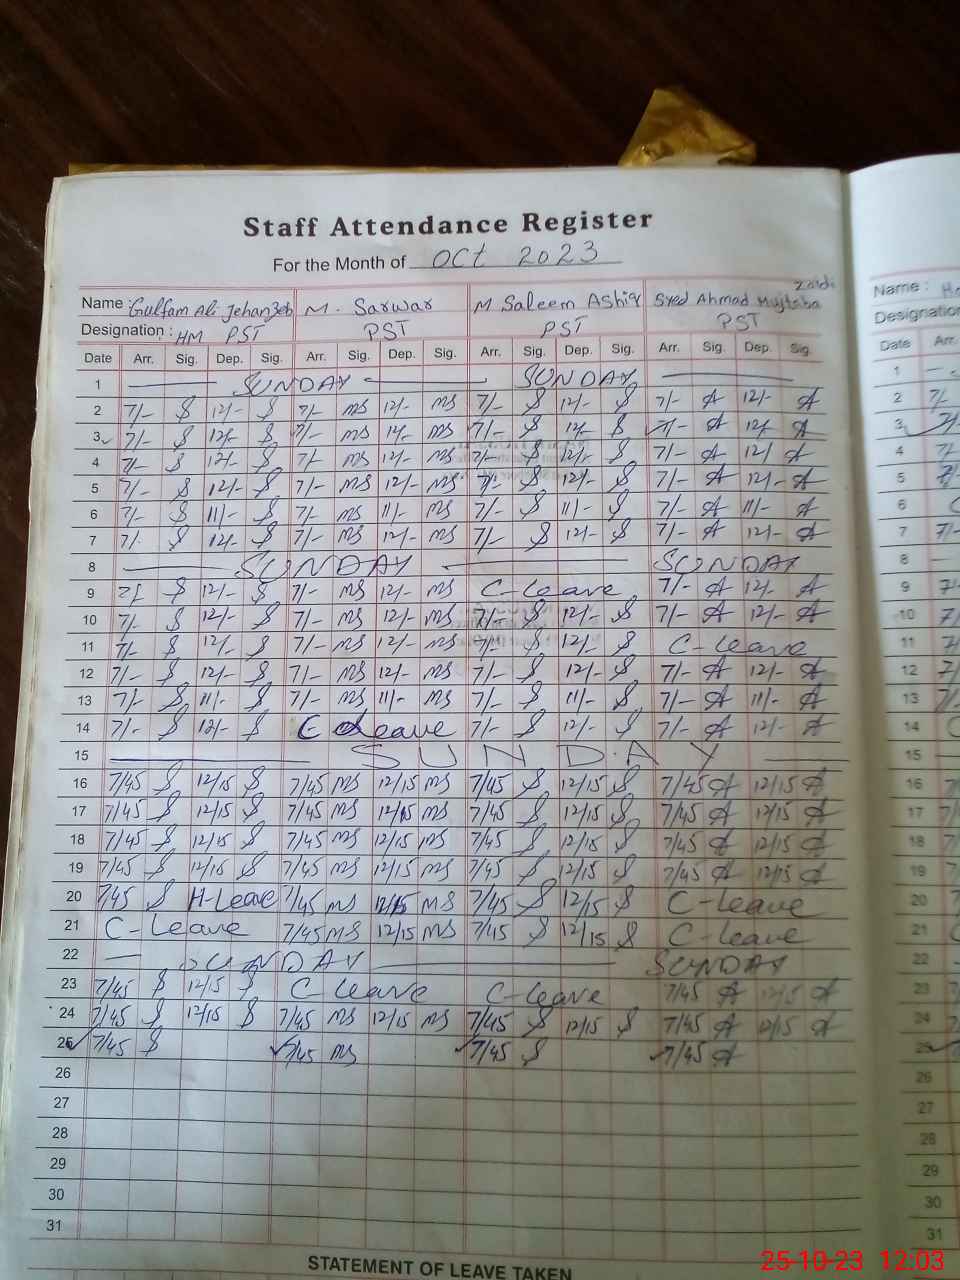 Staff Attendance Register
For the Month of Oct 2023
Name : Gulfam Ali Jehanzeb M. Sarwar M Saleem Ashiq Syed Ahmad Mujtaba Zaidi Name :
Designation : HM PST PST PST PST Designation
Date Arr. Sig. Dep. Sig. Arr. Sig. Dep. Sig. Arr. Sig. Dep. Sig. Arr. Sig. Dep. Sig. Date Arr.
1 SUNDAY SUNDAY 1
2 7/- S 12/- S 7/- MS 12/- MS 7/- S 12/- S 7/- A 12/- A 2 7/-
3 7/- S 12/- S 7/- MS 12/- MS 7/- S 12/- S 7/- A 12/- A 3
4 7/- S 12/- S 7/- MS 12/- MS 7/- S 12/- S 7/- A 12/ A 4 7/
5 7/- S 12/- S 7/- MS 12/- MS 7/- S 12/- S 7/- A 12/- A 5 7/
6 7/- S 11/- S 7/- MS 11/- MS 7/- S 11/- S 7/- A 11/- A 6 C
7 7/- S 12/- S 7/- MS 12/- MS 7/- S 12/- S 7/- A 12/- A 7 7/-
8 SUNDAY SUNDAY 8
9 S 12/- S 7/- MS 12/- MS C-Leave 7/- A 12/- A 9 7/
10 7/- S 12/- S 7/- MS 12/- MS 7/- S 12/- S 7/- A 12/- A 10 7/
11 7/- S 12/- S 7/- MS 12/- MS 7/- S 12/- S C-Leave 11 7/
12 7/- S 12/- S 7/- MS 12/- MS 7/- S 12/- S 7/- A 12/- A 12 7/
13 7/- S 11/- S 7/- MS 11/- MS 7/- S 11/- S 7/- A 11/- A 13 7/
14 7/- S 12/- S C-Leave 7/- S 12/- S 7/- A 12/- A 14 C
15 SUNDAY 15
16 7/45 S 12/15 S 7/45 MS 12/15 MS 7/45 S 12/15 S 7/45 A 12/15 A 16
17 7/45 S 12/15 S 7/45 MS 12/15 MS 7/45 S 12/15 S 7/45 A 12/15 A 17
18 7/45 S 12/15 S 7/45 MS 12/15 MS 7/45 S 12/15 S 7/45 A 12/15 A 18
19 7/45 S 12/15 S 7/45 MS 12/15 MS 7/45 S 12/15 S 7/45 A 12/15 A 19
20 7/45 S H-Leave 7/45 MS 12/15 MS 7/45 S 12/15 S C-Leave 20
21 C-Leave 7/45 MS 12/15 MS 7/45 S 12/15 S C-Leave 21
22 SUNDAY SUNDAY 22
23 7/45 S 12/15 S C-Leave C-Leave 7/45 A 12/15 A 23
24 7/45 S 12/15 S 7/45 MS 12/15 MS 7/45 S 12/15 S 7/45 A 12/15 A 24
25 7/45 S 7/45 MS 7/45 S 7/45 A 25
26 26
27 27
28 28
29 29
30 30
31 31
STATEMENT OF LEAVE TAKEN
25-10-23 12:03